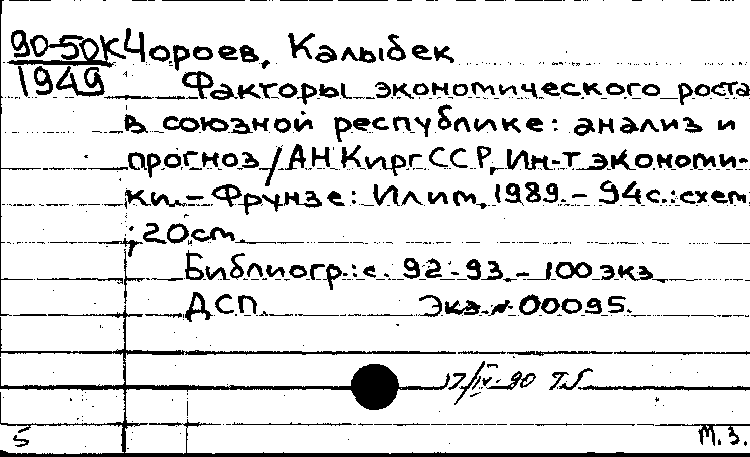 90-50К Чороев, Калыбек
1949
Факторы экономического роста
в союзной республике: анализ и
прогноз / АН Кирг ССР, Ин-т экономи-
ки. - Фрунзе: Илим, 1989. - 94 с.: схем
; 20 cm.
Библиогр.: с. 92-93. - 100 экз
ДСП. Экз. № 00095.
17/IV-90
5 М.З.